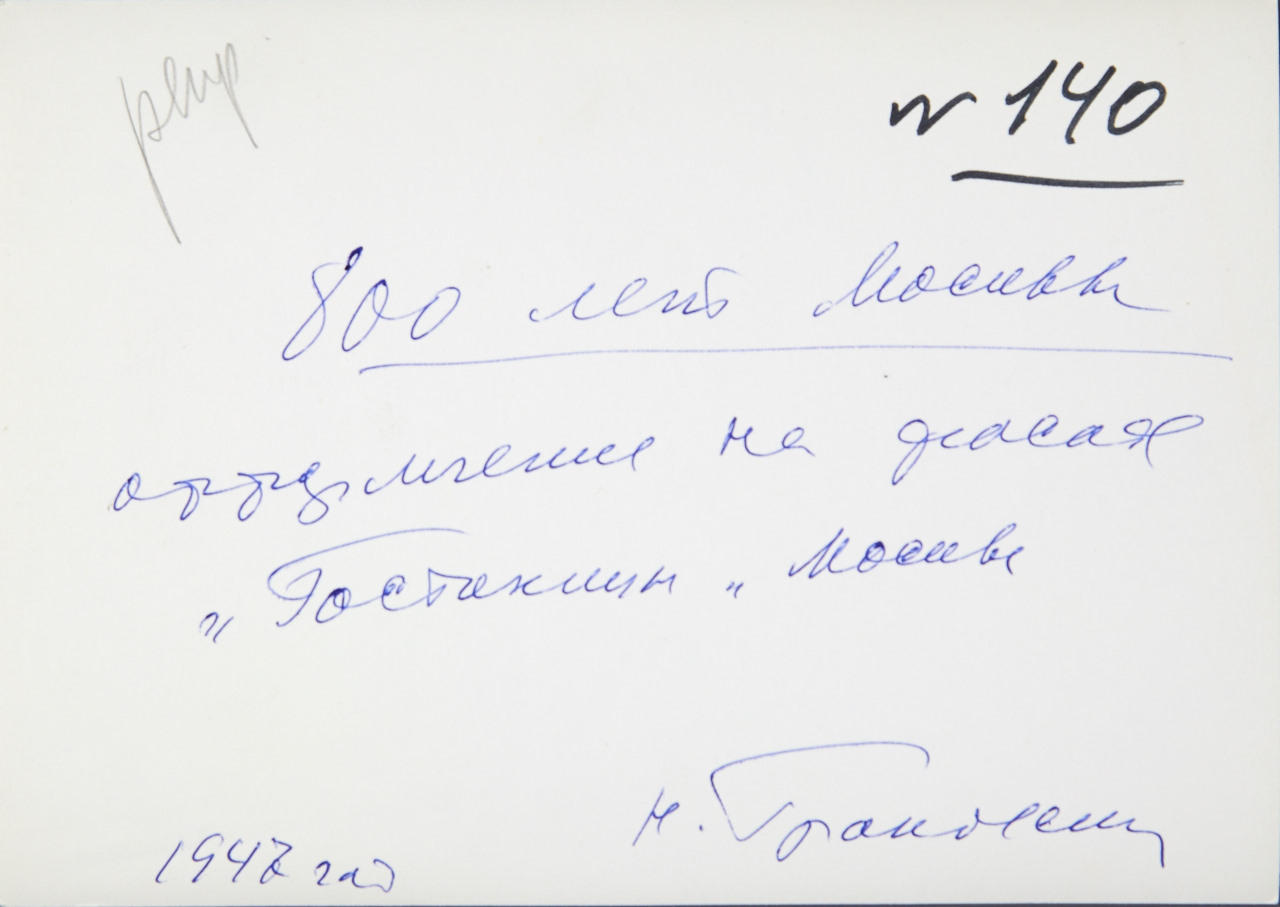 № 140
800 лет Москвы
оформление на фасаде
„Гостиницы„ Москва
Н. Грановский
1947 год